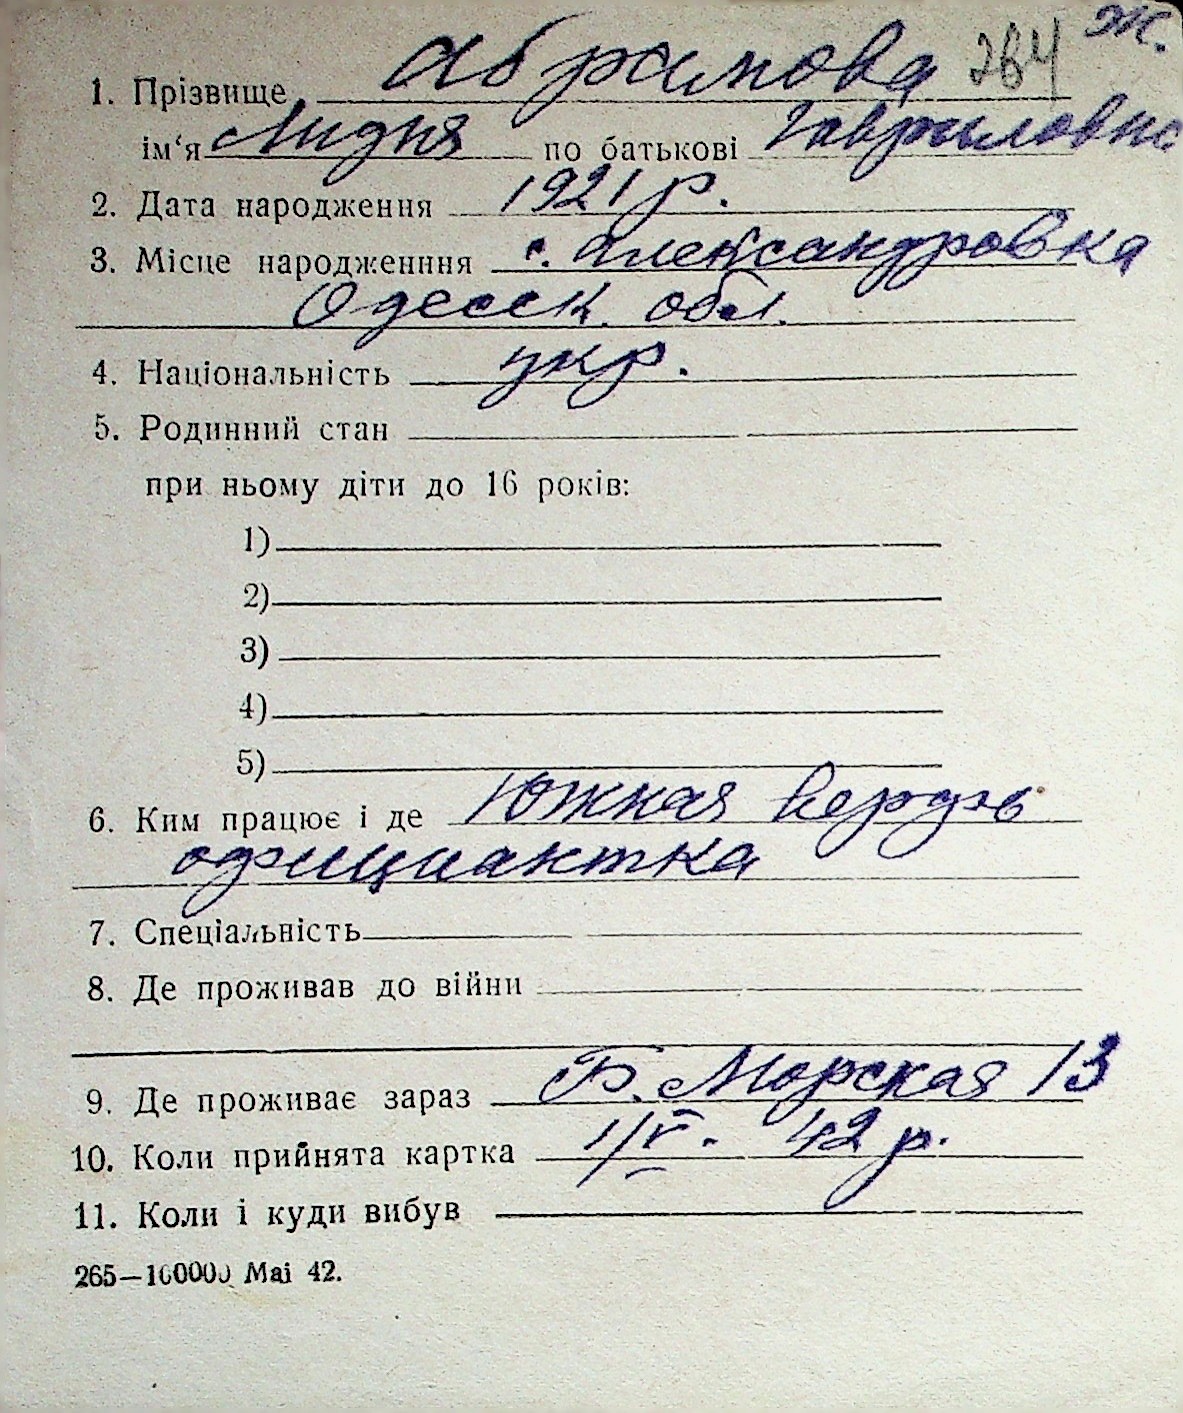 Ж.
1. Прізвище Абрамова 264
ім‘я Лидия по батькові Гавриловна
2. Дата народження 1921 р.
3. Місце народженння с. Александровка
Одесск. обл.
4. Національність укр.
5. Родинний стан
при ньому діти до 16 років:
1)
2)
3)
4)
5)
6. Ким працює і де Южная верфь
официантка
7. Спеціальність
8. Де проживав до війни
9. Де проживає зараз Б. Морская 13
10. Коли прийнята картка 1/V. 42 р.
11. Коли і куди вибув
265—100000 Mai 42.